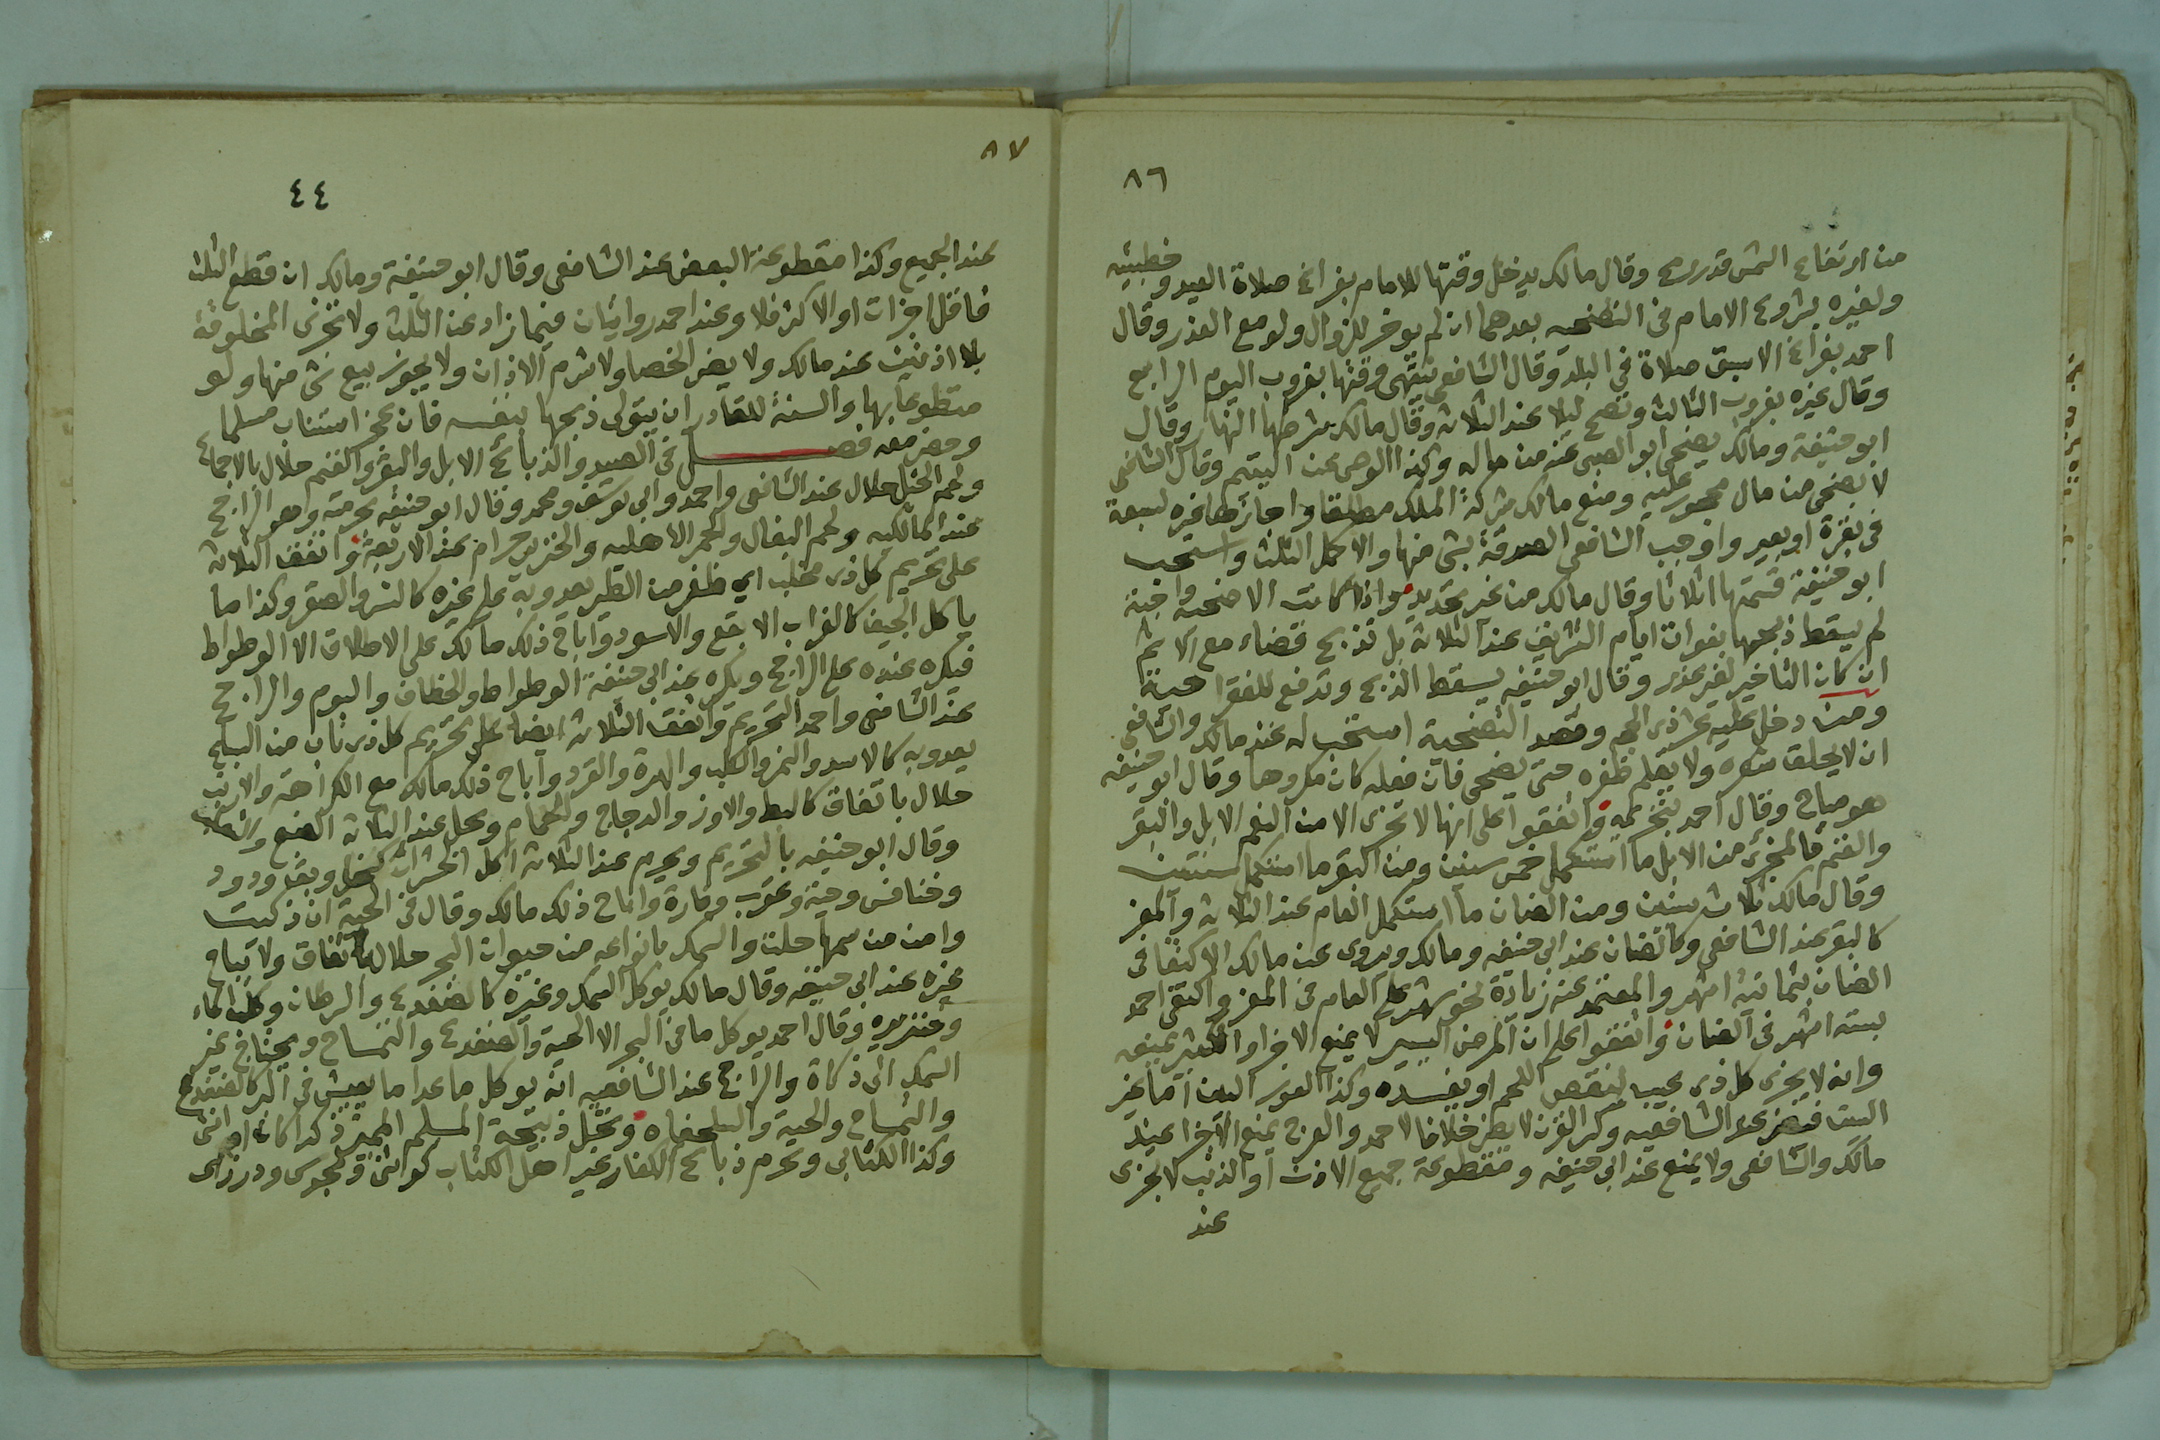 ٨٦
من ارتفاع الشمس قدر رمح وقال مالك يدخل وقتها للامام بفراغ صلاة العيد وخطبتيه
ولغيره بشروع الامام في التضحيه بعدهما ان لم يوخر للزوال ولو مع العذر وقال
احمد بفراغ الاسبق صلاة في البلد وقال الشافعي ينتهى وقتها بغروب اليوم الرابع
وقال غيره بغروب الثالث وتصح ليلا عند الثلاثة وقال مالك شرطها النهار وقال
ابو حنيفة ومالك يضحي ابو الصبى عنه من ماله وكذا الوصى عن اليتيم وقال الشافعي
لا يضحى من مال محجور عليه ومنع مالك شركة الملك مطلقا واجازها غيره لسبعة
في بقرة او بعير واوجب الشافعي الصدقة بشى منها والاكمل الثلث واستحب
ابو حنيفة قسمتها اثلاثا وقال مالك من غير تحديد واذا كانت الاضحيه واجبة
لم يسقط ذبحها بفوات ايام التشريق عند الثلاثة بل تذبح قضاء مع الاثم
ان كان التاخير لغير عذر وقال ابو حنيفه يسقط الذبح وتدفع للفقرا حية
ومن دخل عليه عشر ذى الحجه وقصد التضحية استحب له عند مالك والشافعي
ان لا يحلق شعره ولا يقلم ظفره حتى يضحى فان فعله كان مكروها وقال ابو حنيفه
هو مباح وقال احمد بتحريمه واتفقوا على انها لا تجزى الا من النعم الابل والبقر
والغنم فالمجزى من الابل ما استكمل خمس سنين ومن البقر ما استكمل سنتين
وقال مالك ثلاث سنين ومن الضان ما استكمل العام عند الثلاثة والمعز
كالبقر عند الشافعي وكالضان عند ابى حنيفه ومالك ويروى عن مالك الاكتفا في
الضان بثمانية اشهر والمعتمد عنه زيادة نحو شهر على العام في المعز واكتفى احمد
بستة اشهر في الضان واتفقوا على ان المرض اليسير لا يمنع الاجزا والكثير يمنعه
وانه لا يجزى كل ذى عيب ينقص اللحم او يفسده وكذا العور البين اما غير
البين فيضر عند الشافعيه وكسر القرن لا يضر خلافا لاحمد والعرج يمنع الاجزا عند
مالك والشافعى ولا يمنع عند ابى حنيفه ومقطوعة جميع الاذن او الذنب لا يجزى
عند
٨٧
٤٤
عند الجميع وكذا مقطوعة البعض عند الشافعى وقال ابو حنيفة ومالك ان قطع الثلث
فاقل اجزات او الاكثر فلا وعند احمد روايتان فيما زاد عن الثلث ولا تجزى المخلوقة
بلا اذنين عند مالك ولا يضر الخصا ولا شرم الاذان ولا يجوز بيع شى منها ولو
متطوعا بها والسنة للقادر ان يتولى ذبحها بنفسه فان عجز استناب مسلما
وحضر معه فصل في الصيد والذبائح الابل والبقر والغنم حلال بالاجماع
ولحم الخيل حلال عند الشافعى واحمد وابى يوسف ومحمد وقال ابو حنيفه بحرمته وهو الراجح
عند المالكيه ولحم البغال والحمر الاهليه والخنزير حرام عند الاربعة واتفق الثلاثة
على تحريم كل ذى مخلب اى ظفر من الطير يعدو به على غيره كالنسر والصقر وكذا ما
ياكل الجيف كالغراب الابقع والاسود واباح ذلك مالك على الاطلاق الا الوطواط
فيكره عنده على الراجح ويكره عند ابى حنيفة الوطواط والخطاف والبوم والراجح
عند الشافعى واحمد التحريم واتفق الثلاثة ايضا على تحريم كل ذى ناب من السباع
يعدو به كالاسد والنمر والكلب والهرة والقرد واباح ذلك مالك مع الكراهة والارنب
حلال باتفاق كالبط والاوز والدجاج والحمام ويحل عند الثلاثة الضبع والثعلب
وقال ابو حنيفه بالتحريم ويحرم عند الثلاثة اكل الحشرات كنحل وبق ودود
وخنافس وحية وعقرب وفارة واباح ذلك مالك وقال في الحية ان ذكيت
وامن من سمها حلت والسمك بانواعه من حيوان البحر حلال باتفاق ولا يباح
غيره عند ابى حنيفه وقال مالك يوكل السمك وغيره كالضفدع والسرطان وكلب الماء
وخنزيره وقال احمد يوكل ما في البحر الا الحية والضفدع والتمساح ويحتاج غير
السمك الى ذكاة والراجح عند الشافعيه انه يوكل ما عدا ما يعيش في البر كالضفدع
والتمساح والحية والسلحفاه وتحل ذبيحة المسلم المميز ذكرا كان او انثى
وكذا الكتابى وتحرم ذبائح الكفار غير اهل الكتاب كوثنى ومجوسى ودرزى